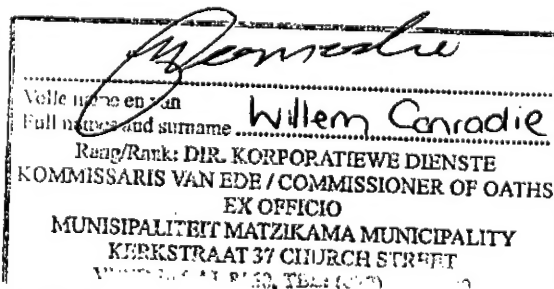 Volle name en van
Full names and surname Willem Conradie
Rang/Rank: DIR. KORPORATIEWE DIENSTE
KOMMISSARIS VAN EDE / COMMISSIONER OF OATHS
EX OFFICIO
MUNISIPALITEIT MATZIKAMA MUNICIPALITY
KERKSTRAAT 37 CHURCH STREET